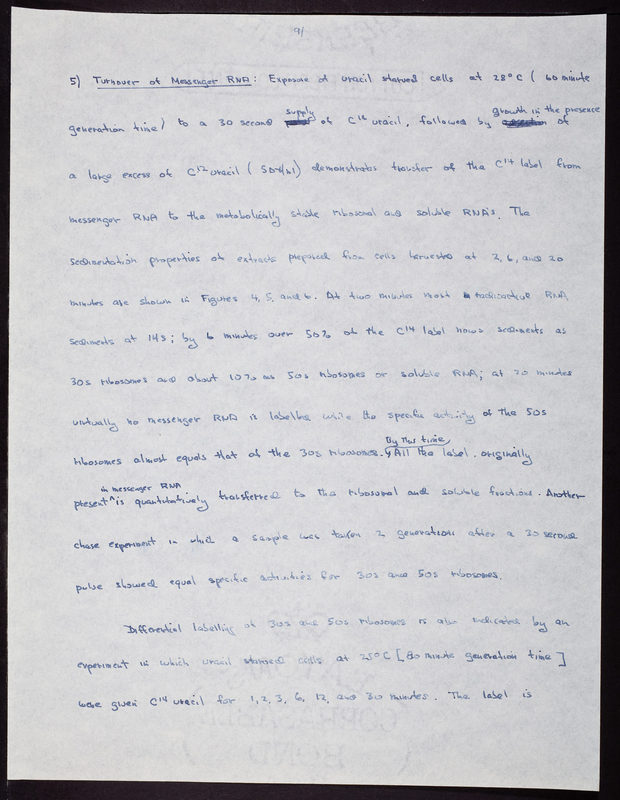 9/
5) Turnover of Messenger RNA: Exposure of uracil starved cells at 28°C ( 60 minute
generation time) to a 30 second supply of C14 uracil, followed by growth in the presence of
a large excess of C12 uracil ( 50γ/ml) demonstrates transfer of the C14 label from
messenger RNA to the metabolically stable ribosomal and soluble RNA's. The
sedimentation properties of extracts prepared from cells harvested at 2, 6, and 20
minutes are shown in Figures 4, 5, and 6. At two minutes most radioactive RNA
sediments at 14s; by 6 minutes over 50% of the C14 label now sediments as
30s ribosomes and about 10% as 50s ribosomes or soluble RNA; at 20 minutes
virtually no messenger RNA is labelled while the specific activity of the 50s
ribosomes almost equals that of the 30s ribosomes. By this time, All the label originally
present in messenger RNA is quantitatively transferred to the ribosomal and soluble fractions. Another
chase experiment in which a sample was taken 2 generations after a 30 second
pulse showed equal specific activities for 30s and 50s ribosomes.
Differential labelling of 30s and 50s ribosomes is also indicated by an
experiment in which uracil starved cells at 25°C [80 minute generation time]
were given C14 uracil for 1, 2, 3, 6, 12, and 30 minutes. The label is